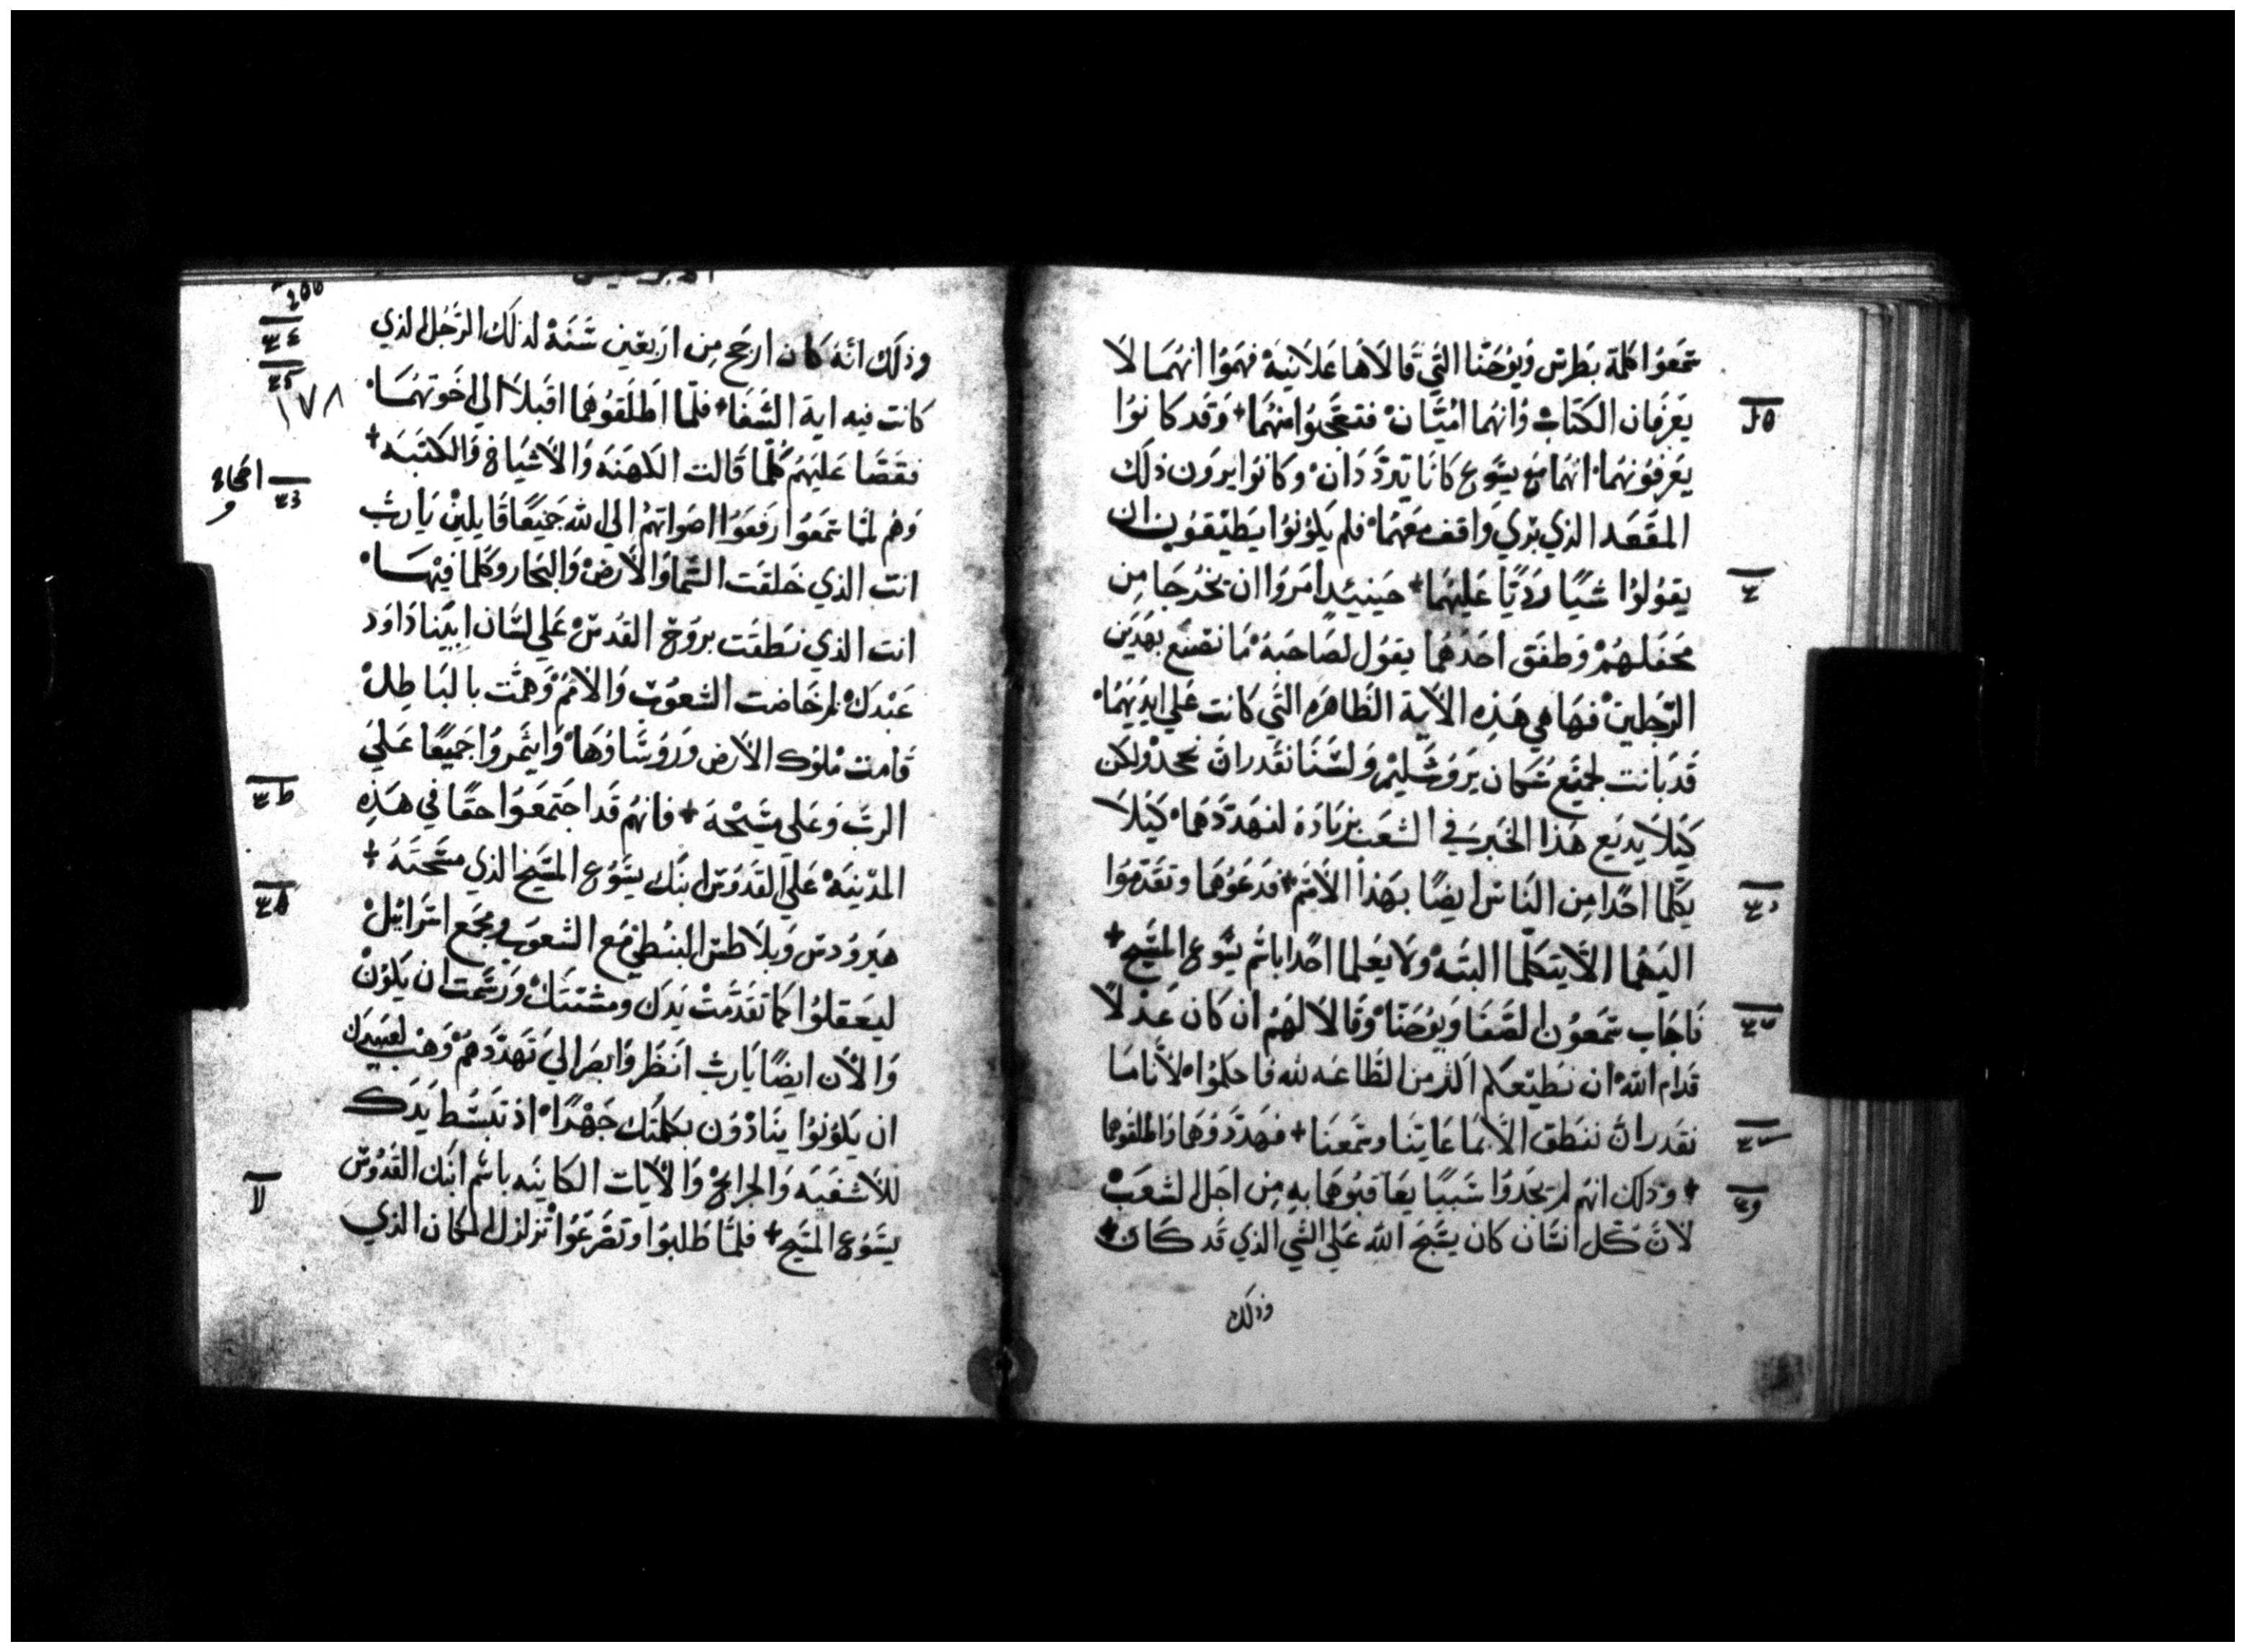 سمعوا كلمة بطرس ويوحنا التي قالاها علانية فهموا انهما لا
يعرفان الكتاب وانهما اميان فتعجبوا منهما + وقد كانوا
يعرفونهما انهما مع يسوع كانا يترددان وكانوا يرون ذلك
المقعد الذي بري واقف معهما فلم يكونوا يطيقون ان
يقولوا شيا رديا عليهما + حينيد امروا ان يخرجا من
محفلهم وطفق احدهما يقول لصاحبه ما نصنع بهذين
الرجلين فها هي هذه الاية الظاهره التي كانت علي ايديهما
قد بانت لجميع سكان يروشليم ولسنا نقدر ان نجحد ولكن
كيلا يذيع هذا الخبر في الشعب بزيادة لنهددهما كيلا
يكلما احدا من الناس ايضا بهذا الاسم + فدعوهما وتقدموا
اليهما الا يتكلما البته ولا يعلما احدا باسم يسوع المسيح +
فاجاب سمعون الصفا ويوحنا وقالا لهم ان كان عدلا
قدام الله ان نطيعكم اكثر من الطاعه لله فاحكموا لانا ما
نقدر ان ننطق الا بما عاينا وسمعنا + فهددوهما واطلقوهما
+ وذلك انهم لم يجدوا سببا يعاقبوهما به من اجل الشعب
لان كل انسان كان يسبح الله علي الشي الذي قد كان +
وذلك
وذلك انه كان ارجح من اربعين سنة لذلك الرجل الذي
كانت فيه اية الشفا + فلما اطلقوهما اقبلا الي اخوتهما
فقصا عليهم كلما قالت الكهنه والاشياخ والكتبه +
وهم لما سمعوا رفعوا اصواتهم الي الله جميعا قايلين يا رب
انت الذي خلقت السما والارض والبحار وكلما فيها
انت الذي نطقت بروح القدس علي لسان ابينا داود
عبدك لم خاضت الشعوب والامم وهمت بالباطل
قامت ملوك الارض وروساوها وايتمروا جميعا علي
الرب وعلي مسيحه + فانهم قد اجتمعوا حقا في هذه
المدينه علي القدوس ابنك يسوع المسيح الذي مسحته +
هيرودس وبلاطس البنطي مع الشعوب ومجمع اسرائيل
ليعقلوا كما تقدمت يدك ومشتتك ورسمت ان يكون
والان ايضا يا رب انظر وابصر الي تهددهم وهب لعبيدك
ان يكونوا ينادون بكلمتك جهرا اذ تبسط يدك
للاشفيه والجرايح والايات الكاينه باسم ابنك القدوس
يسوع المسيح + فلما طلبوا وتضرعوا تزلزل المكان الذي
١٧٨